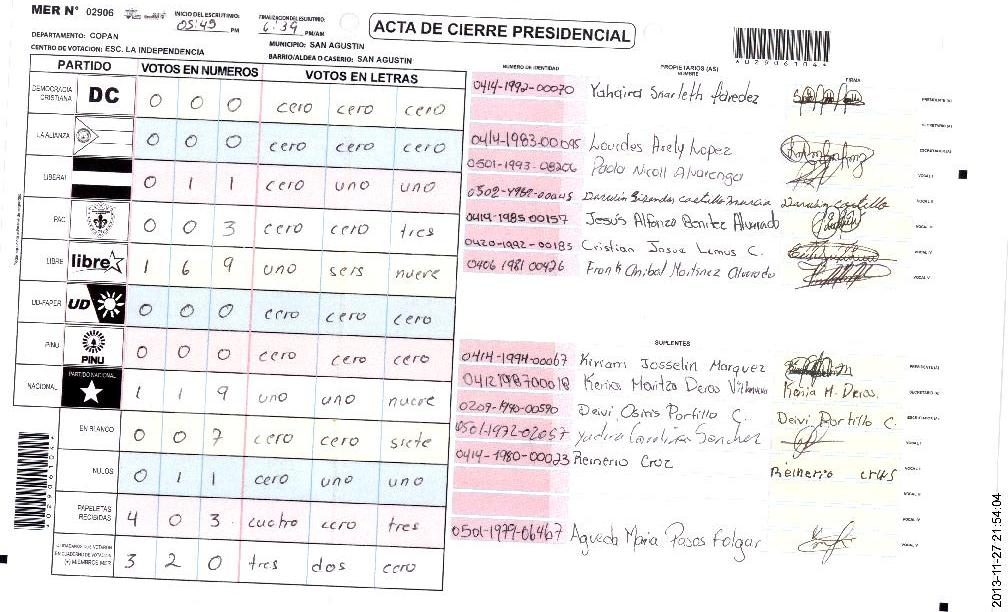 MER N° 02906 INICIO DEL ESCRUTINIO: 05:49 PM FINALIZACION DEL ESCRUTINIO: 6:39 PM/AM
ACTA DE CIERRE PRESIDENCIAL
DEPARTAMENTO: COPAN
MUNICIPIO: SAN AGUSTIN
CENTRO DE VOTACION: ESC. LA INDEPENDENCIA
BARRIO/ALDEA O CASERIO: SAN AGUSTIN
PARTIDO VOTOS EN NUMEROS VOTOS EN LETRAS
DEMOCRACIA CRISTIANA DC 0 0 0 cero cero cero
LA ALIANZA 0 0 0 cero cero cero
LIBERAL 0 1 1 cero uno uno
PAC 0 0 3 cero cero tres
LIBRE libre 1 6 9 uno seis nueve
UD-FAPER UD 0 0 0 cero cero cero
PINU PINU 0 0 0 cero cero cero
NACIONAL PARTIDO NACIONAL 1 1 9 uno uno nueve
EN BLANCO 0 0 7 cero cero siete
NULOS 0 1 1 cero uno uno
PAPELETAS RECIBIDAS 4 0 3 cuatro cero tres
CIUDADANOS QUE VOTARON EN CUADERNO DE VOTACION (+) MIEMBROS MER 3 2 0 tres dos cero
NUMERO DE IDENTIDAD PROPIETARIOS (AS) NOMBRE FIRMA
0414-1992-00070 Yahaira PRESIDENTE (A)
SECRETARIO (A)
0414-1983-00095 Lourdes Arely Lopez ESCRUTADOR (A)
0501-1993-08206 Paola Nicoll Alvarenga VOCAL I
Darwin castillo murcia Darwin castillo VOCAL II
0414-1985-00157 Jesús Alfonzo Benitez Alvarado
0420-1992-00185 Cristian Josue Lemus C. VOCAL IV
0406 1981 00426 Frank Anibal Martinez Alvarado VOCAL V
SUPLENTES
0414-1994-00067 Kiriam Josselin Marquez PRESIDENTE (A)
0412198700018 Kenia Maritza Deras Villanueva Kenia M. Deras. SECRETARIO (A)
0209-1990-00590 Deivi Osiris Portillo C. Deivi Portillo C. ESCRUTADOR (A)
0501-1972-02057 Yadira Carolina Sanchez VOCAL I
0414-1980-00023 Reinerio Cruz Reinerio VOCAL II
VOCAL III
VOCAL IV
0501-1979-06467 Agueda Maria Pasos Folgar VOCAL V
2013-11-27 21:54:04